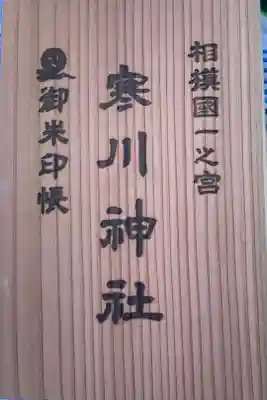 相模國一之宮
寒川神社
御米印帳